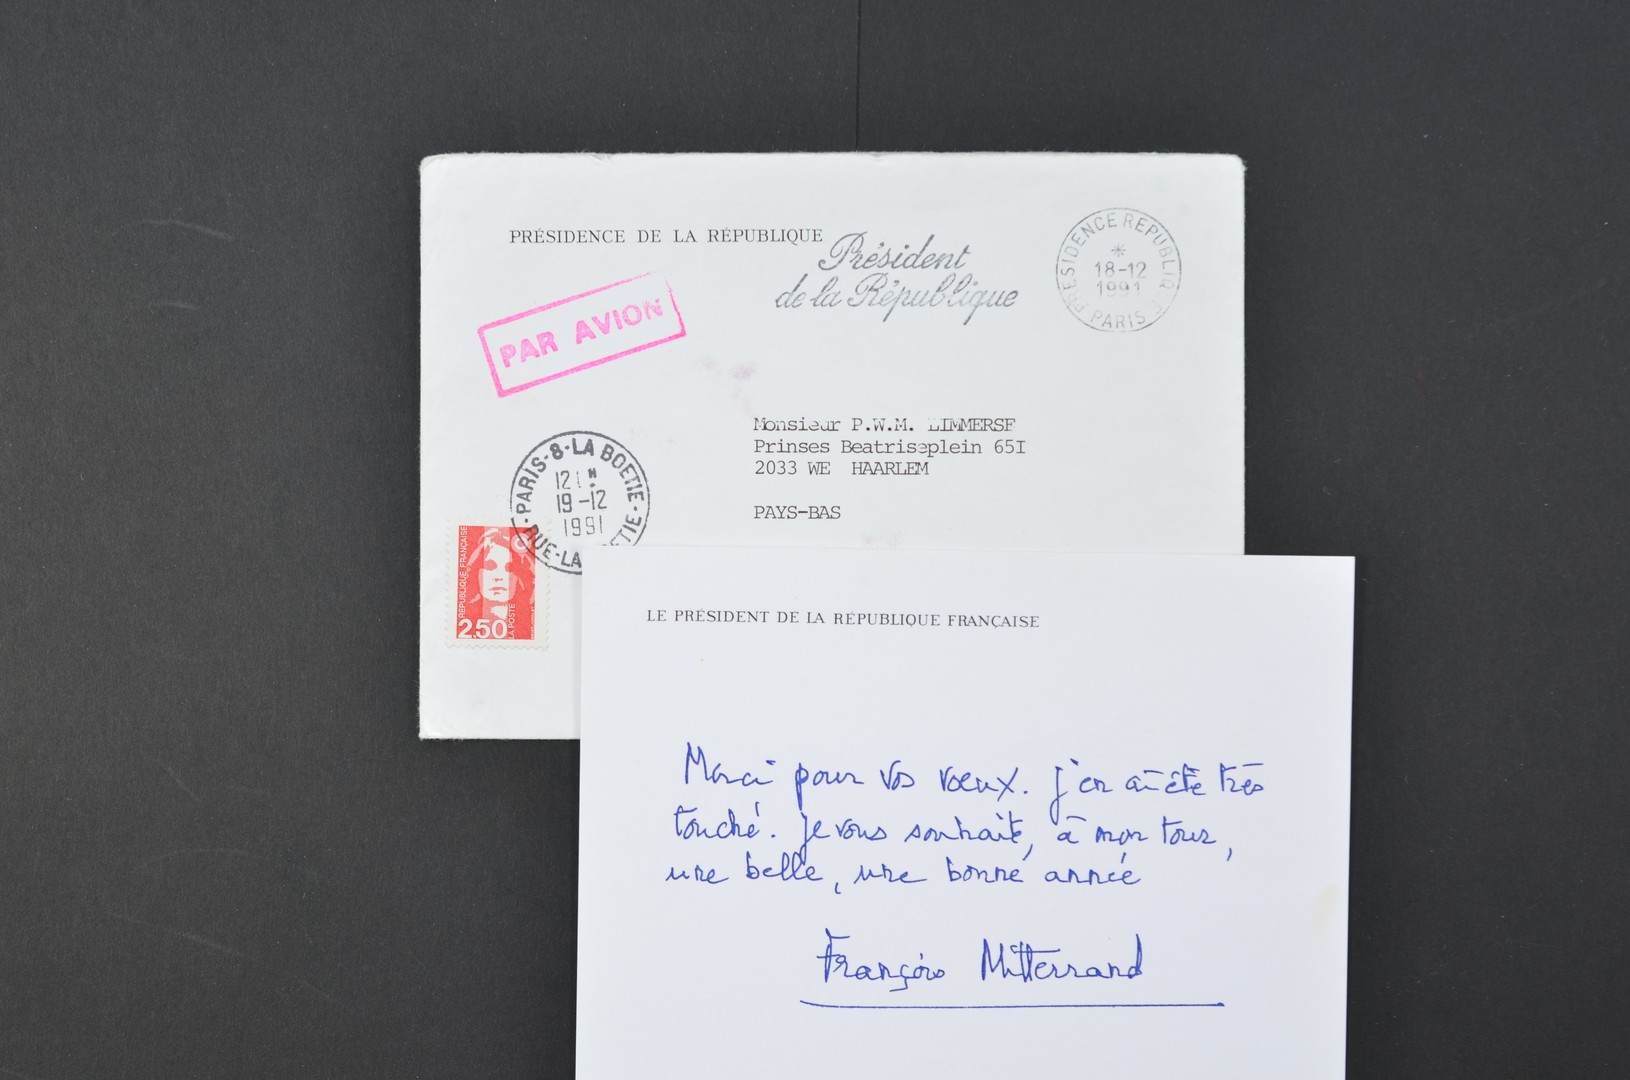 PRÉSIDENCE DE LA RÉPUBLIQUE
Président
de la République
PRESIDENCE REPUBLIQUE
18-12
1991
PARIS
PAR AVION
Monsieur P.W.M. LIMMERSE
Prinses Beatriseplein 65I
2033 WE HAARLEM
PAYS-BAS
PARIS-8-LA BOETIE
19-12
1991
RUE-LA
REPUBLIQUE FRANÇAISE
2,50
LA POSTE
LE PRÉSIDENT DE LA RÉPUBLIQUE FRANÇAISE
Merci pour vos voeux. J'en ai été très
touché. Je vous souhaite, à mon tour,
une belle, une bonne année
François Mitterrand